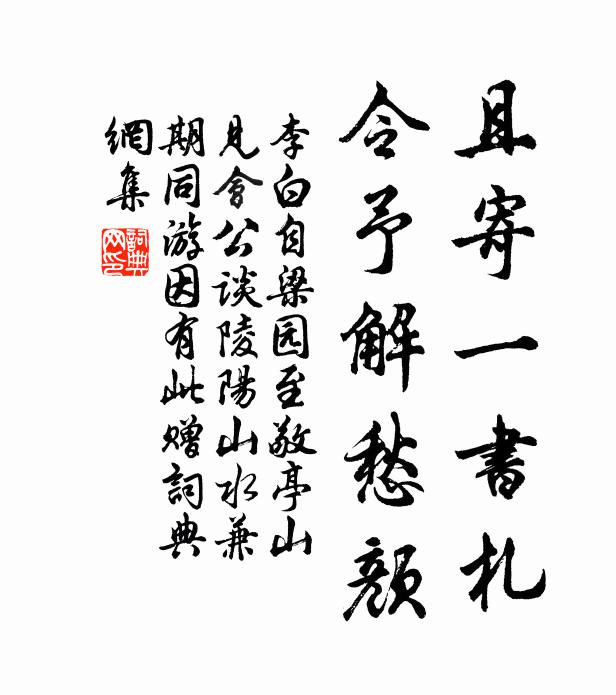 且寄一書札
令予解愁顏
李白自梁园至敬亭山
見會公谈陵陽山水兼
期同游因有此赠詞典
網集
詞典网印